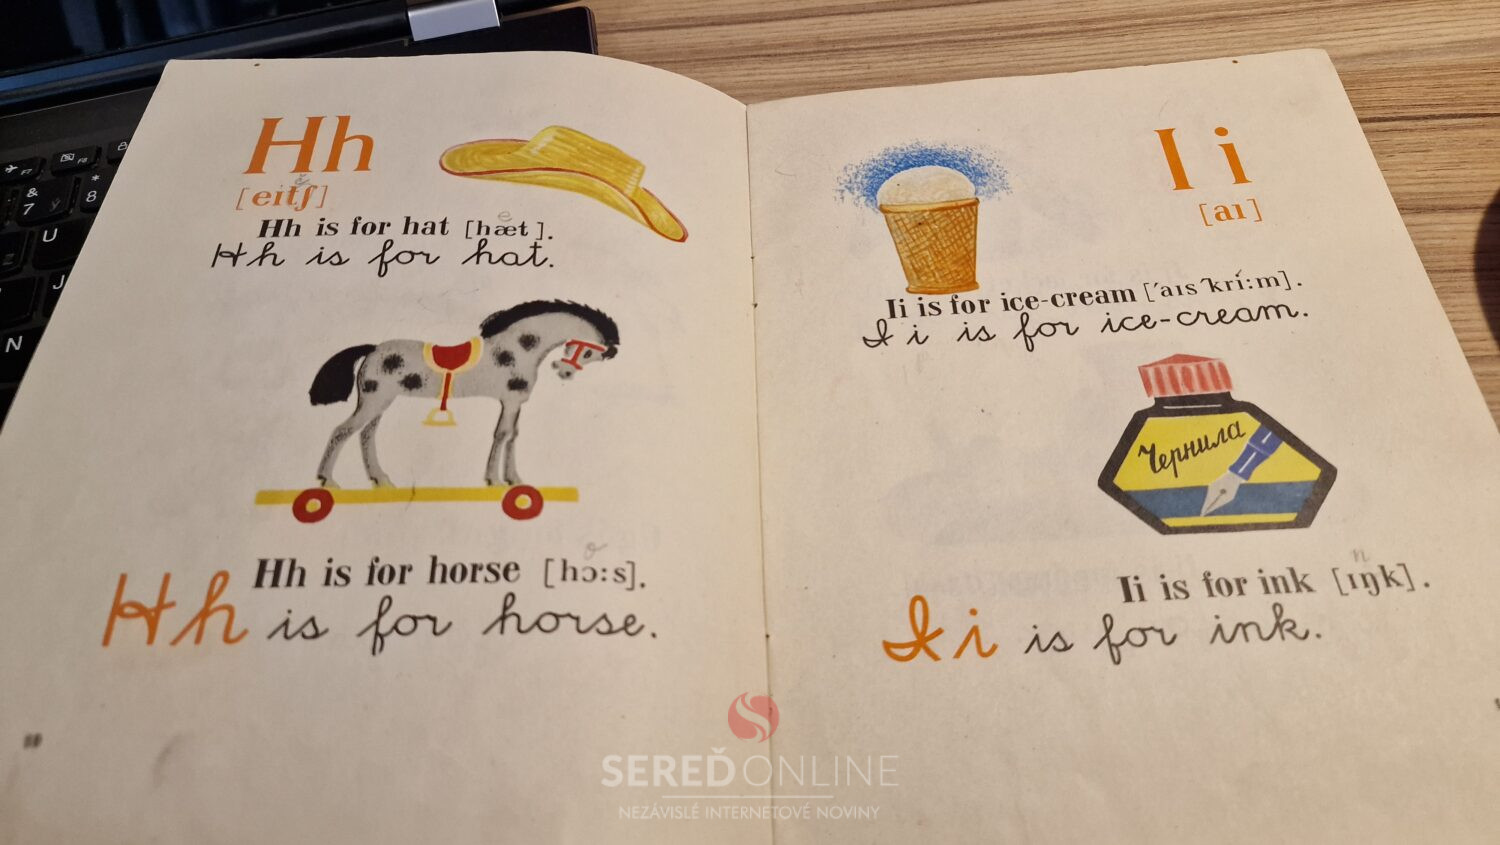 Hh
[eitʃ]
Hh is for hat [hæt].
Hh is for hat.
Hh is for horse [hɔ:s].
Hh is for horse.
10
I i
[aɪ]
Ii is for ice-cream [ˊaɪsˊkrí:m].
I i is for ice-cream.
Чернила
Ii is for ink [ɪŋk].
I i is for ink.
SEREĎONLINE
NEZÁVISLÉ INTERNETOVÉ NOVINY
F7
F8
&
7
ý
*
8
U
J
N